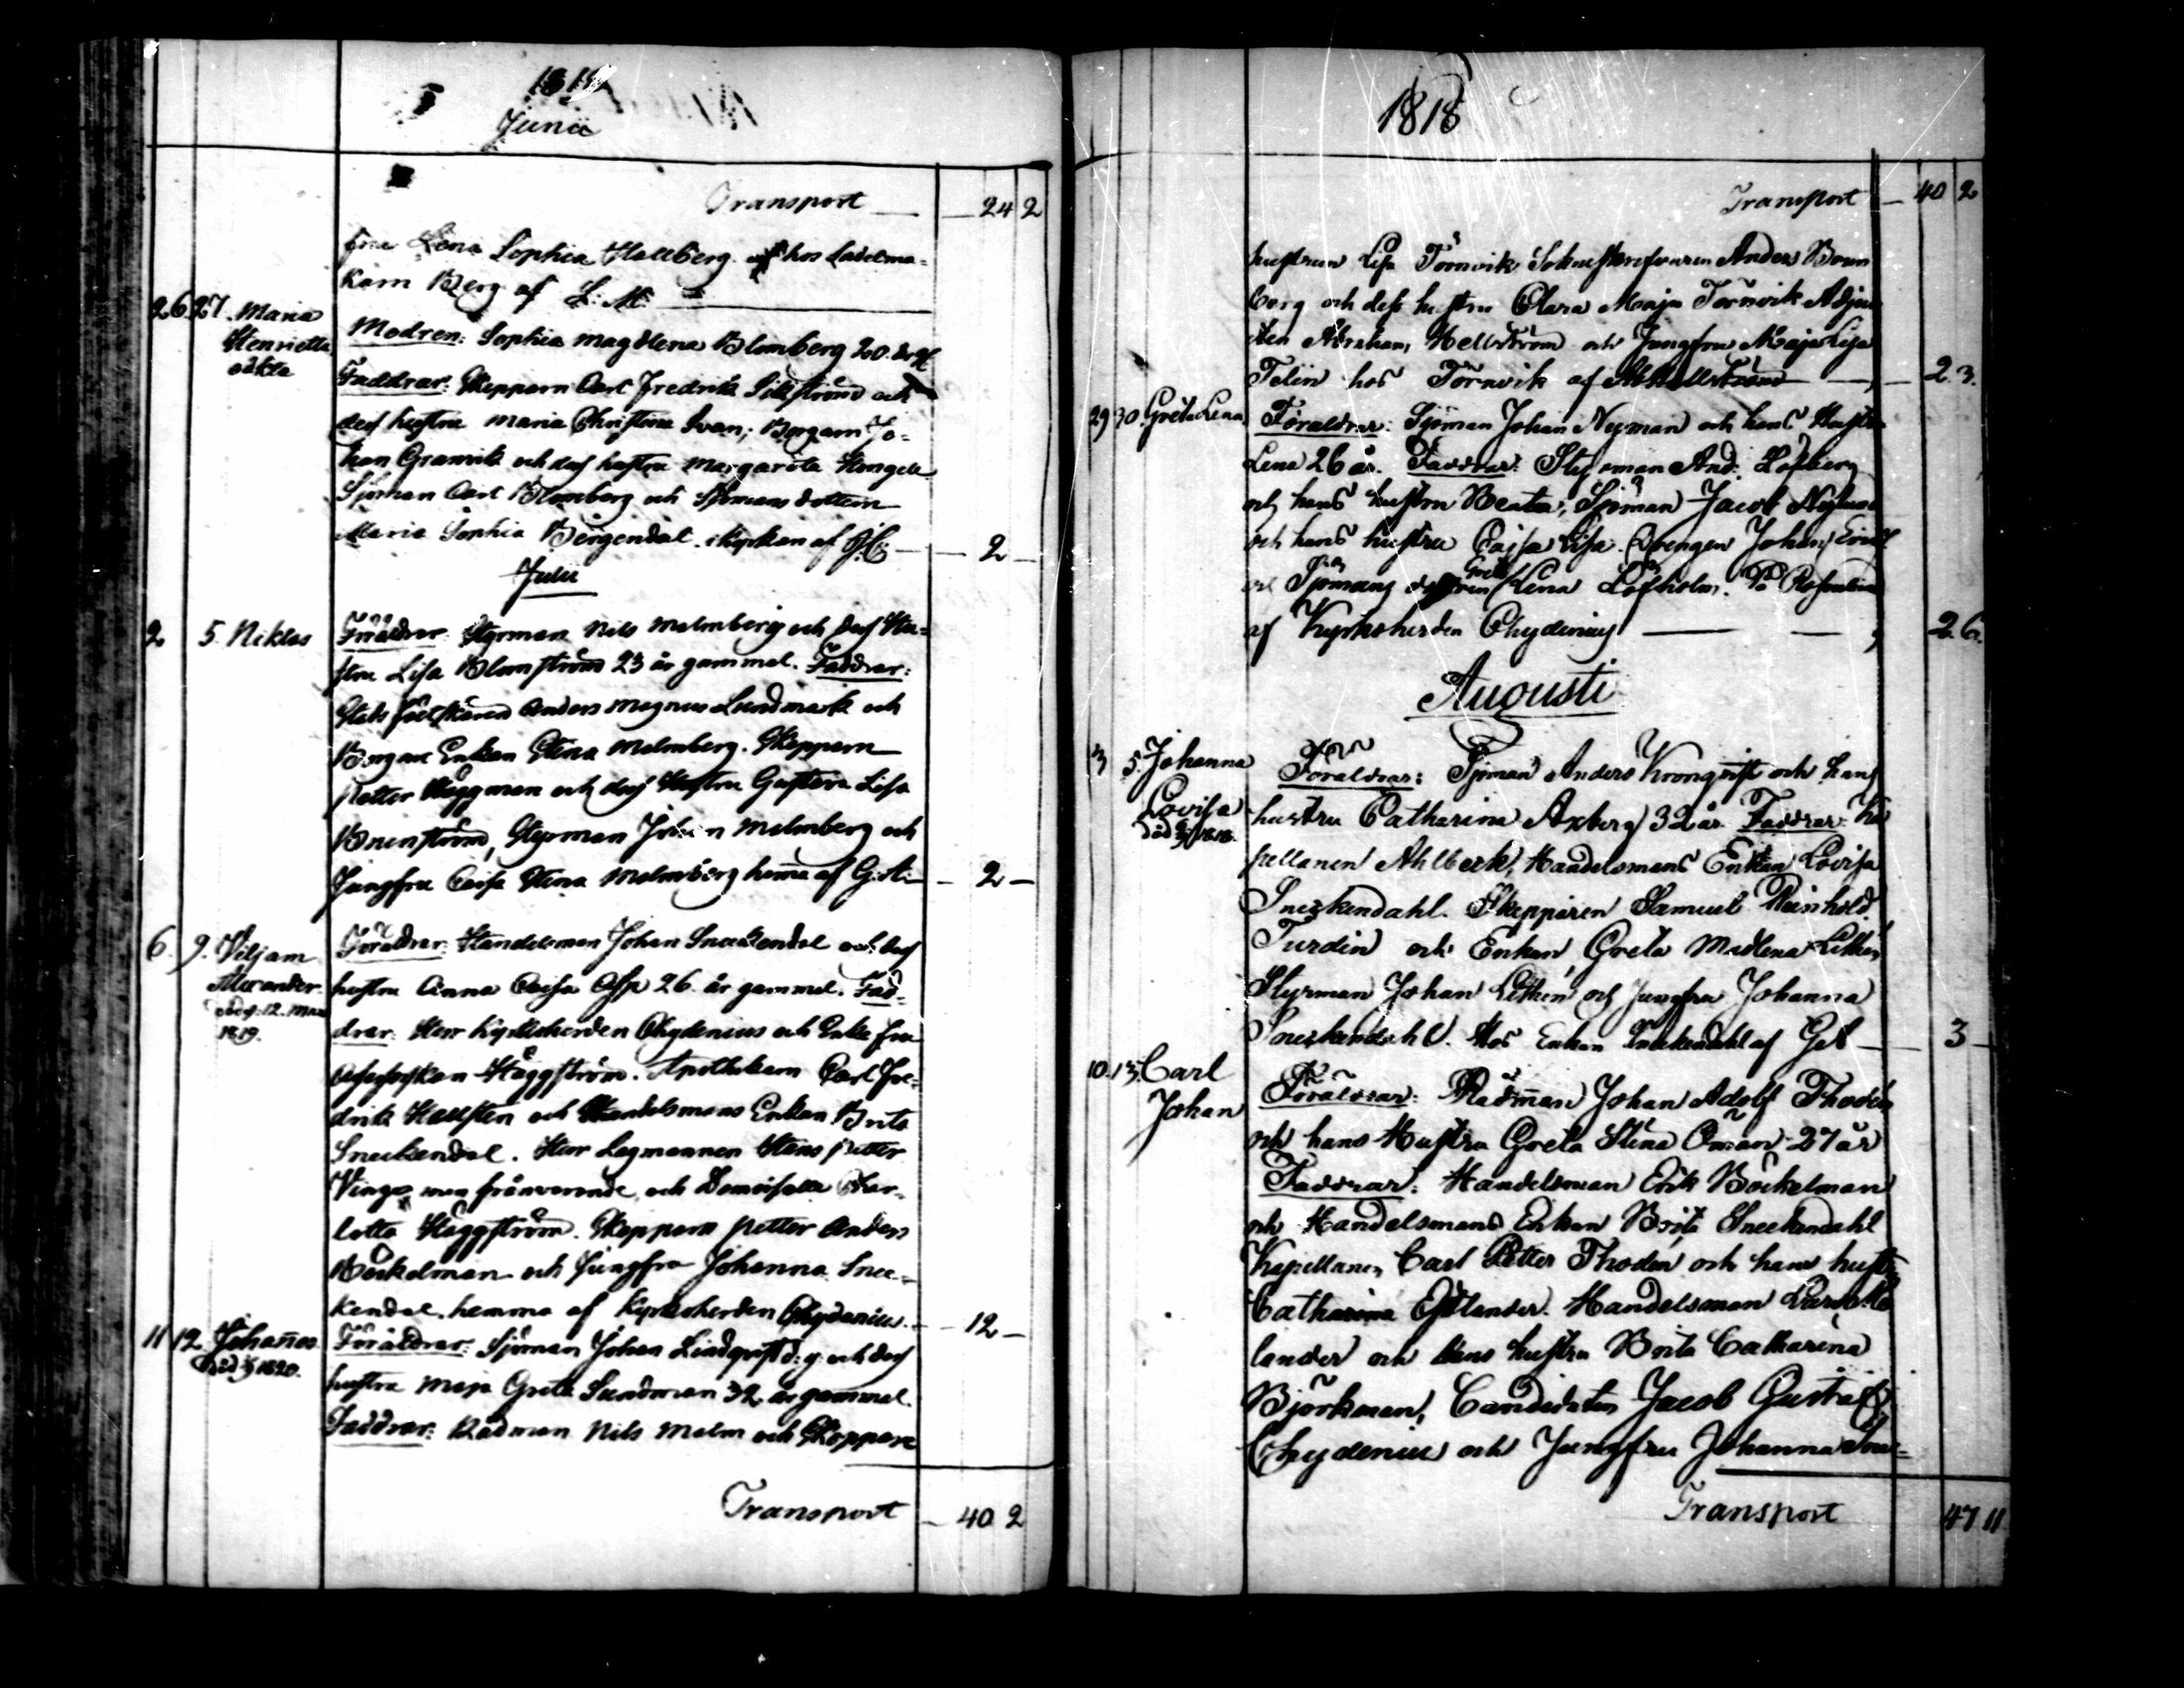 1818
Junii
Transport — 24 2
fru Lena Sophia Hallberg hos sadelma-
karn Berg af L: M:
26 27. Maria Henrietta oäkta
Modren: Sophia Magdlena Blomberg 20 år gl
Faddrar: Skepparn Carl Fredrik Sikström och
dess hustru Maria Christina Svan; Borgarn Jo-
han Granvik och dess hustru Margareta
Sjöman Carl Blomberg och Sjömans dottern
Maria Sophia Bergendal. i Kyrkan af — 2 —
Julii
2 5. Niklas
Föräldrar: Styrman Nils Malmberg och dess Hu-
stru Lisa Blomström 23 år gammal. Faddrar:
Stads fältskären Anders Magnus Lundmark och
Borgare Enkan Stina Malmberg. Skepparn
Petter Häggman och dess Hustru Gustava Lisa
Brunström, Styrman Johan Malmberg och
Jungfru Caisa Stina Malmberg hema af G: A: — 2 —
6. 9. Viljam Alexander. död 12. Maii 1819.
Föräldrar: Handelsman Johan Sneckendal och dess
hustru Anna Caisa 26 år gammal. Fad-
drar: Herr Kyrkoherden Chydenius och Enke fru
Häggström. Apothekarn Carl Fre-
drik Hallsten och Handelsmans Enkan Brita
Sneckendal. Herr Lagmannen Hans Petter
men frånvarande, och Demoiselle Char-
lotta Häggström. Skepparn Petter Anders
Böckelman och Jungfru Johanna Snec-
kendal. hemma af Kyrkoherden Chydenius. — 12 —
11 12. Johannes död 1820.
Föräldrar: Sjöman Johan Lindqvist d: y: och dess
hustru Maja Greta Sundman 32 år gammal.
Faddrar: Rådman Nils Malm och Skeppare
Transport — 40 2
1818
Transport — 40 2
hustrun Lisa Törnvik Anders Bonn
berg och dess hustru Clara Maja Törnvik
Abraham Hellström och Jungfru Maja Lisa
Telin hos Törnvik af — 2 3.
29 30. Greta Lena
Föräldrar: Sjöman Johan Nyman och hans Hustru
Lena 26 år. Faddrar: Styrman And: Löfberg
och hans hustru Beata; Sjöman Jacob
och hans hustru Caisa Lisa. Drengen Johan
och Sjömans dottren Greta Lena Löfholm. På
af Kyrkoherden Chydenius — 2 6.
Augusti
3 5. Johanna Lovisa död 1818.
Föräldrar: Sjöman Anders Kronqvist och hans
hustru Catharina Axberg 32 år. Faddrar: Ka
pellanen Ahlbeck, Handelsmans Enkan Lovisa
Sneckendahl. Skepparen Samuel Reinhold
Turdin och Enkan Greta Madlena Lithén
Styrman Johan Lithén och Jungfru Johanna
Sneckendahl. Hos Enkan Sneckendahl af — 3 —
10. 13. Carl Johan
Föräldrar: Rådman Johan Adolf Thodén
och hans Hustru Greta Stina Öman 27 år
Faddrar: Handelsman Erik Böckelman
och Handelsmans Enkan Brita Sneckendahl
Kapellanen Carl Petter Thodén och hans hustru
Catharina Estlander. Handelsman
lander och hans hustru Brita Catharina
Björkman, Candidaten Jacob Gustaf
Chydenius och Jungfru Johanna Snec-
Transport 47 11